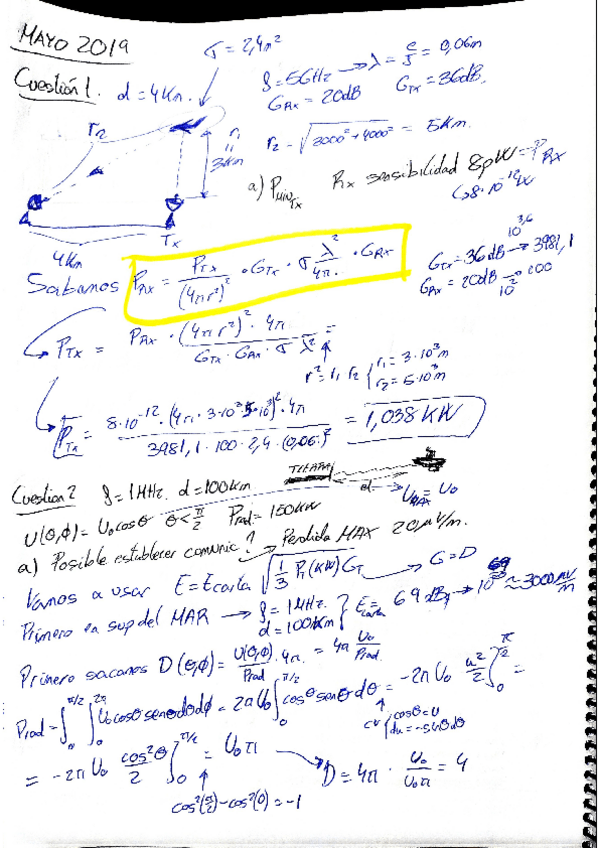 MAYO 2019
σ = 2,4m²
Cuestión 1. d = 4Km.
f = 5GHz → λ = c/f = 0,06m
G_Rx = 20dB G_Tx = 36dB.
r2
r1 = 3Km
r2 = √(3000² + 4000²) = 5Km.
a) P_min Tx Rx sensibilidad 8pW = P_Rx
↳ 8·10⁻¹² W
Tx
4Km
G_Tx = 36dB → 10^3,6 3981,1
G_Rx = 20dB → 10² 100
Sabemos P_Rx = P_Tx/(4πr²)² · G_Tx · σ λ²/4π · G_Rx
P_Tx = P_Rx · (4πr²)² · 4π / G_Tx · G_Rx · σ λ² =
r² = r1 r2 { r1 = 3·10³m
r2 = 5·10³m
P_Tx = 8·10⁻¹² · (4π · 3·10³ · 5·10³)² · 4π / 3981,1 · 100 · 2,4 · (0,06)² = 1,038 KW
TIERRA
Cuestion 2 f = 1MHz. d = 100km
d U_MAX = U0
U(θ,φ) = U0 cosθ θ < π/2 Prad = 150KW
a) Posible establecer comunic? → Perdida MAX 20μV/m.
Vamos a usar E = Ecarta √(1/3 Pt(KW) Gt) → G = D
Primero en sup del MAR → f = 1MHz. d = 100Km } Ecarta = 69 dBμ → 10^69 ≈ 3000 μV/m
Primero sacamos D(θ,φ) = U(θ,φ)/Prad · 4π = 4π U0/Prad.
Prad = ∫₀^π/2 ∫₀^2π U0 cosθ senθ dθ dφ = 2π U0 ∫₀^π/2 cosθ senθ dθ = -2π U0 u²/2 ]₀^π/2 =
CV { cosθ = u
du = -senθ dθ
= -2π U0 cos²θ/2 ]₀^π/2 = U0 π → D = 4π · U0/U0π = 4
cos²(π/2) - cos²(0) = -1